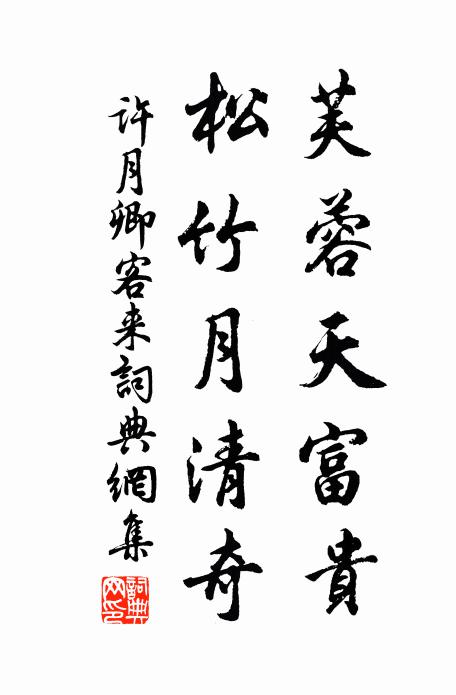 芙蓉天富貴
松竹月清奇
許月卿客来詞典網集
詞典
网印